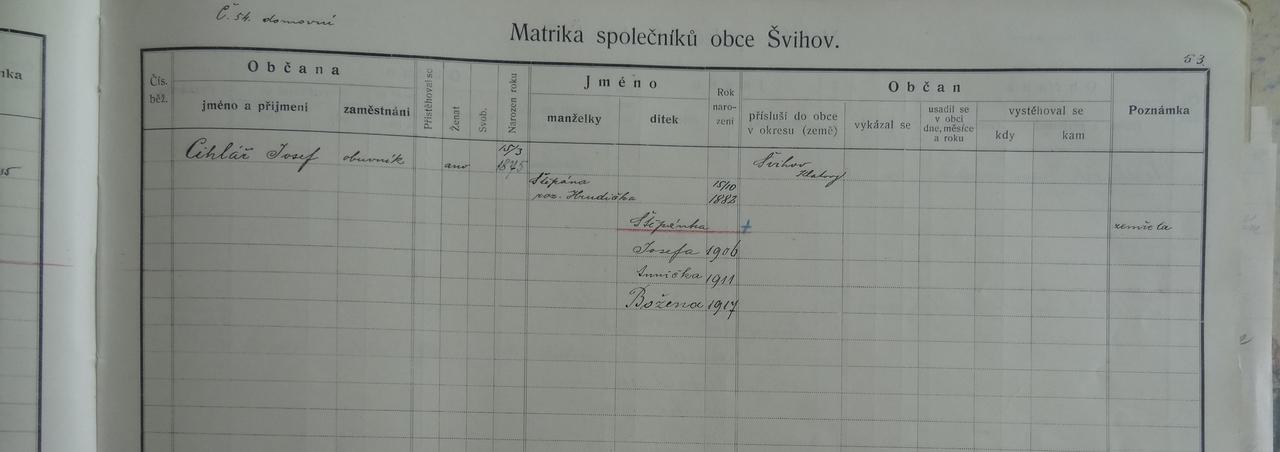 Č. 54. domovní
Matrika společníků obce Švihov.
53
Čís. běž.
Občana
jméno a přijmení
zaměstnání
Přistěhoval se
Ženat
Svob.
Narozen roku
Jméno
manželky
dítek
Rok naro- zení
Občan
přísluší do obce v okresu (země)
vykázal se
usadil se v obci dne, měsíce a roku
vystěhoval se
kdy
kam
Poznámka
Cihlář Josef obuvník ano 15/3 1875 Švihov Klatovy
Štěpána 15/10
roz. Hrudička 1882
Štěpánka + zemřela
Josefa 1906
Annička 1911
Božena 1917